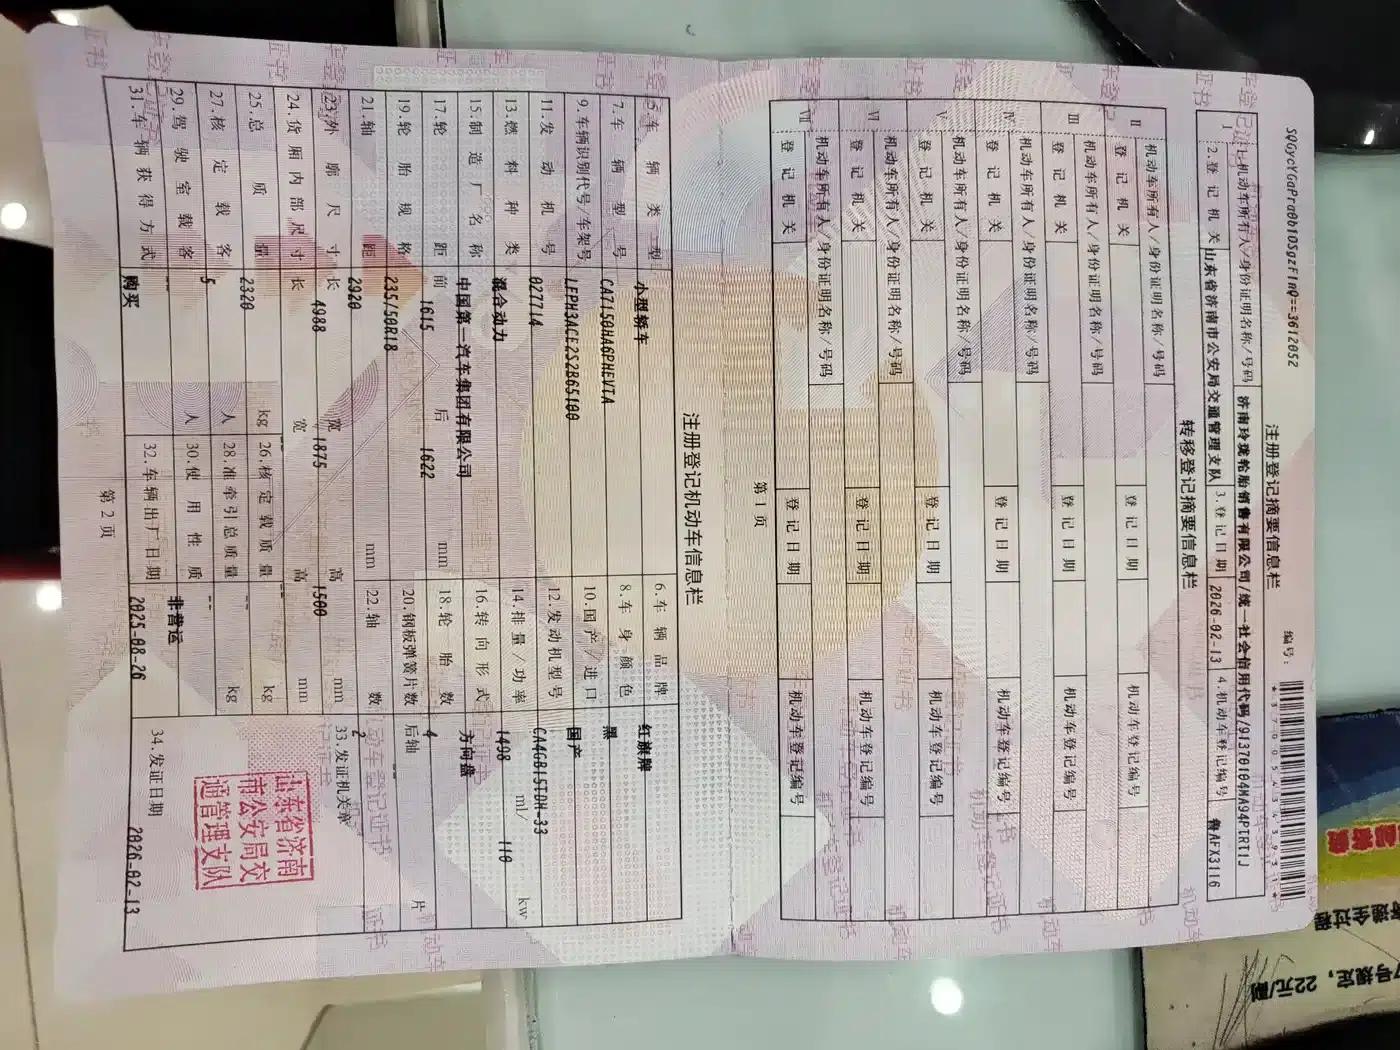 SQGycYGaPra0bf0SgzF1nQ==3612052
注册登记摘要信息栏
编号：
*370054343931*
I
1.机动车所有人/身份证明名称/号码
济南玲珑轮胎销售有限公司/统一社会信用代码/91370104MA94PTRT1J
2.登记机关
山东省济南市公安局交通管理支队
3.登记日期
2026-02-13
4.机动车登记编号
鲁AFX3116
转移登记摘要信息栏
II
机动车所有人/身份证明名称/号码
登记机关
登记日期
机动车登记编号
III
机动车所有人/身份证明名称/号码
登记机关
登记日期
机动车登记编号
IV
机动车所有人/身份证明名称/号码
登记机关
登记日期
机动车登记编号
V
机动车所有人/身份证明名称/号码
登记机关
登记日期
机动车登记编号
VI
机动车所有人/身份证明名称/号码
登记机关
登记日期
机动车登记编号
VII
机动车所有人/身份证明名称/号码
登记机关
登记日期
机动车登记编号
第1页
注册登记机动车信息栏
5.车辆类型 小型轿车 6.车辆品牌 红旗牌
7.车辆型号 CA7150HA6PHEVTA 8.车身颜色 黑
9.车辆识别代号/车架号 LFPH3ACE2S2B65100 10.国产/进口 国产
11.发动机号 027714 12.发动机型号 CA4GB15TDH-33
13.燃料种类 混合动力 14.排量/功率 1498 ml/ 110 kw
15.制造厂名称 中国第一汽车集团有限公司 16.转向形式 方向盘
17.轮距 前 1615 后 1622 mm 18.轮胎数 4
19.轮胎规格 235/50R18 20.钢板弹簧片数 后轴 -- 片
21.轴距 2920 mm 22.轴数 2
23.外廓尺寸 长 4988 宽 1875 高 1500 mm 33.发证机关章
24.货厢内部尺寸 长 宽 -- 高 mm
25.总质量 2320 kg 26.核定载质量 -- kg
27.核定载客 5 人 28.准牵引总质量 -- kg
29.驾驶室载客 -- 人 30.使用性质 非营运
31.车辆获得方式 购买 32.车辆出厂日期 2025-08-26 34.发证日期 2026-02-13
山东省济南
市公安局交
通管理支队
第2页
22元/副